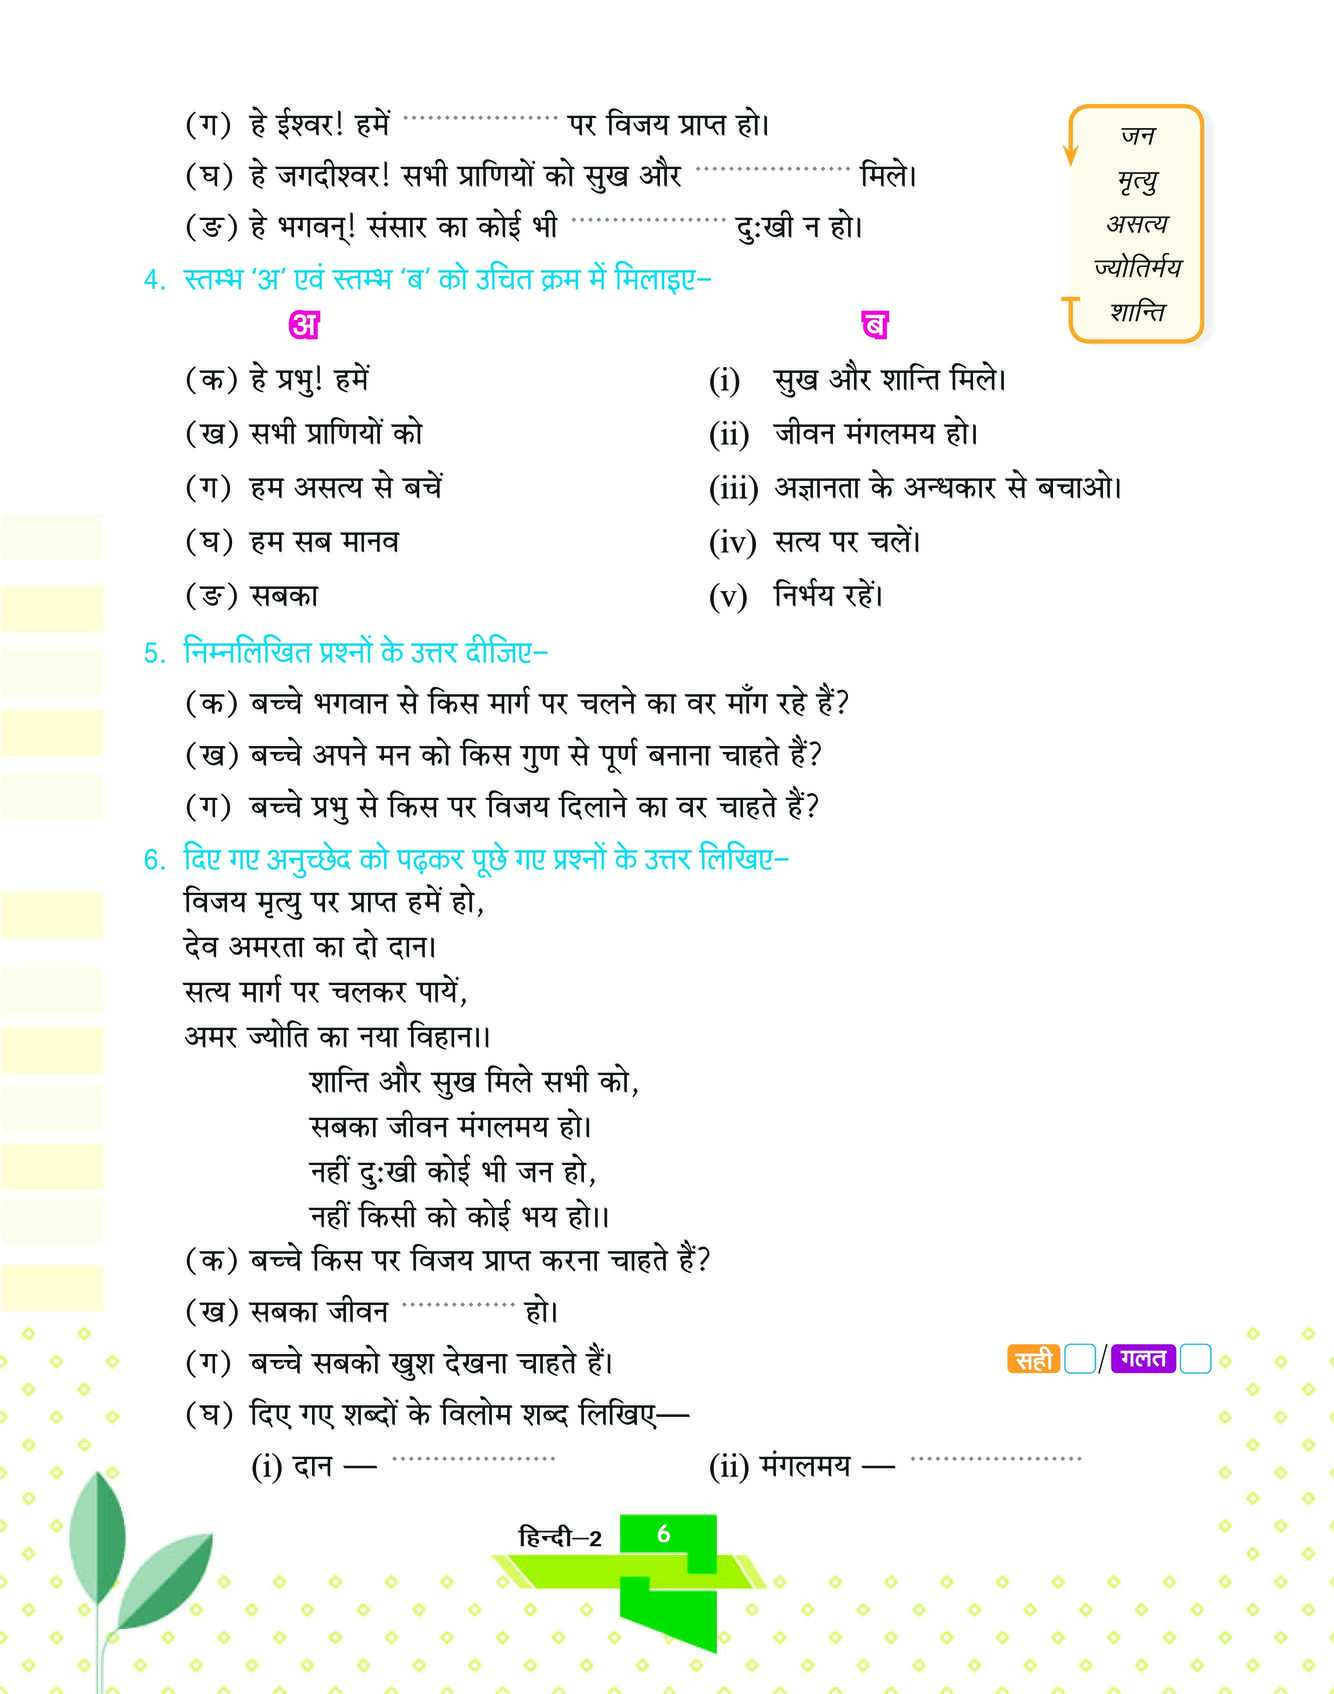 (ग) हे ईश्वर! हमें ................... पर विजय प्राप्त हो।
(घ) हे जगदीश्वर! सभी प्राणियों को सुख और ................... मिले।
(ङ) हे भगवन्! संसार का कोई भी ................... दुःखी न हो।
जन
मृत्यु
असत्य
ज्योतिर्मय
शान्ति
4. स्तम्भ ‘अ’ एवं स्तम्भ ‘ब’ को उचित क्रम में मिलाइए–
अ ब
(क) हे प्रभु! हमें (i) सुख और शान्ति मिले।
(ख) सभी प्राणियों को (ii) जीवन मंगलमय हो।
(ग) हम असत्य से बचें (iii) अज्ञानता के अन्धकार से बचाओ।
(घ) हम सब मानव (iv) सत्य पर चलें।
(ङ) सबका (v) निर्भय रहें।
5. निम्नलिखित प्रश्नों के उत्तर दीजिए–
(क) बच्चे भगवान से किस मार्ग पर चलने का वर माँग रहे हैं?
(ख) बच्चे अपने मन को किस गुण से पूर्ण बनाना चाहते हैं?
(ग) बच्चे प्रभु से किस पर विजय दिलाने का वर चाहते हैं?
6. दिए गए अनुच्छेद को पढ़कर पूछे गए प्रश्नों के उत्तर लिखिए–
विजय मृत्यु पर प्राप्त हमें हो,
देव अमरता का दो दान।
सत्य मार्ग पर चलकर पायें,
अमर ज्योति का नया विहान।।
शान्ति और सुख मिले सभी को,
सबका जीवन मंगलमय हो।
नहीं दुःखी कोई भी जन हो,
नहीं किसी को कोई भय हो।।
(क) बच्चे किस पर विजय प्राप्त करना चाहते हैं?
(ख) सबका जीवन .............. हो।
(ग) बच्चे सबको खुश देखना चाहते हैं। सही / गलत
(घ) दिए गए शब्दों के विलोम शब्द लिखिए—
(i) दान — .................... (ii) मंगलमय — .....................
हिन्दी–2 6